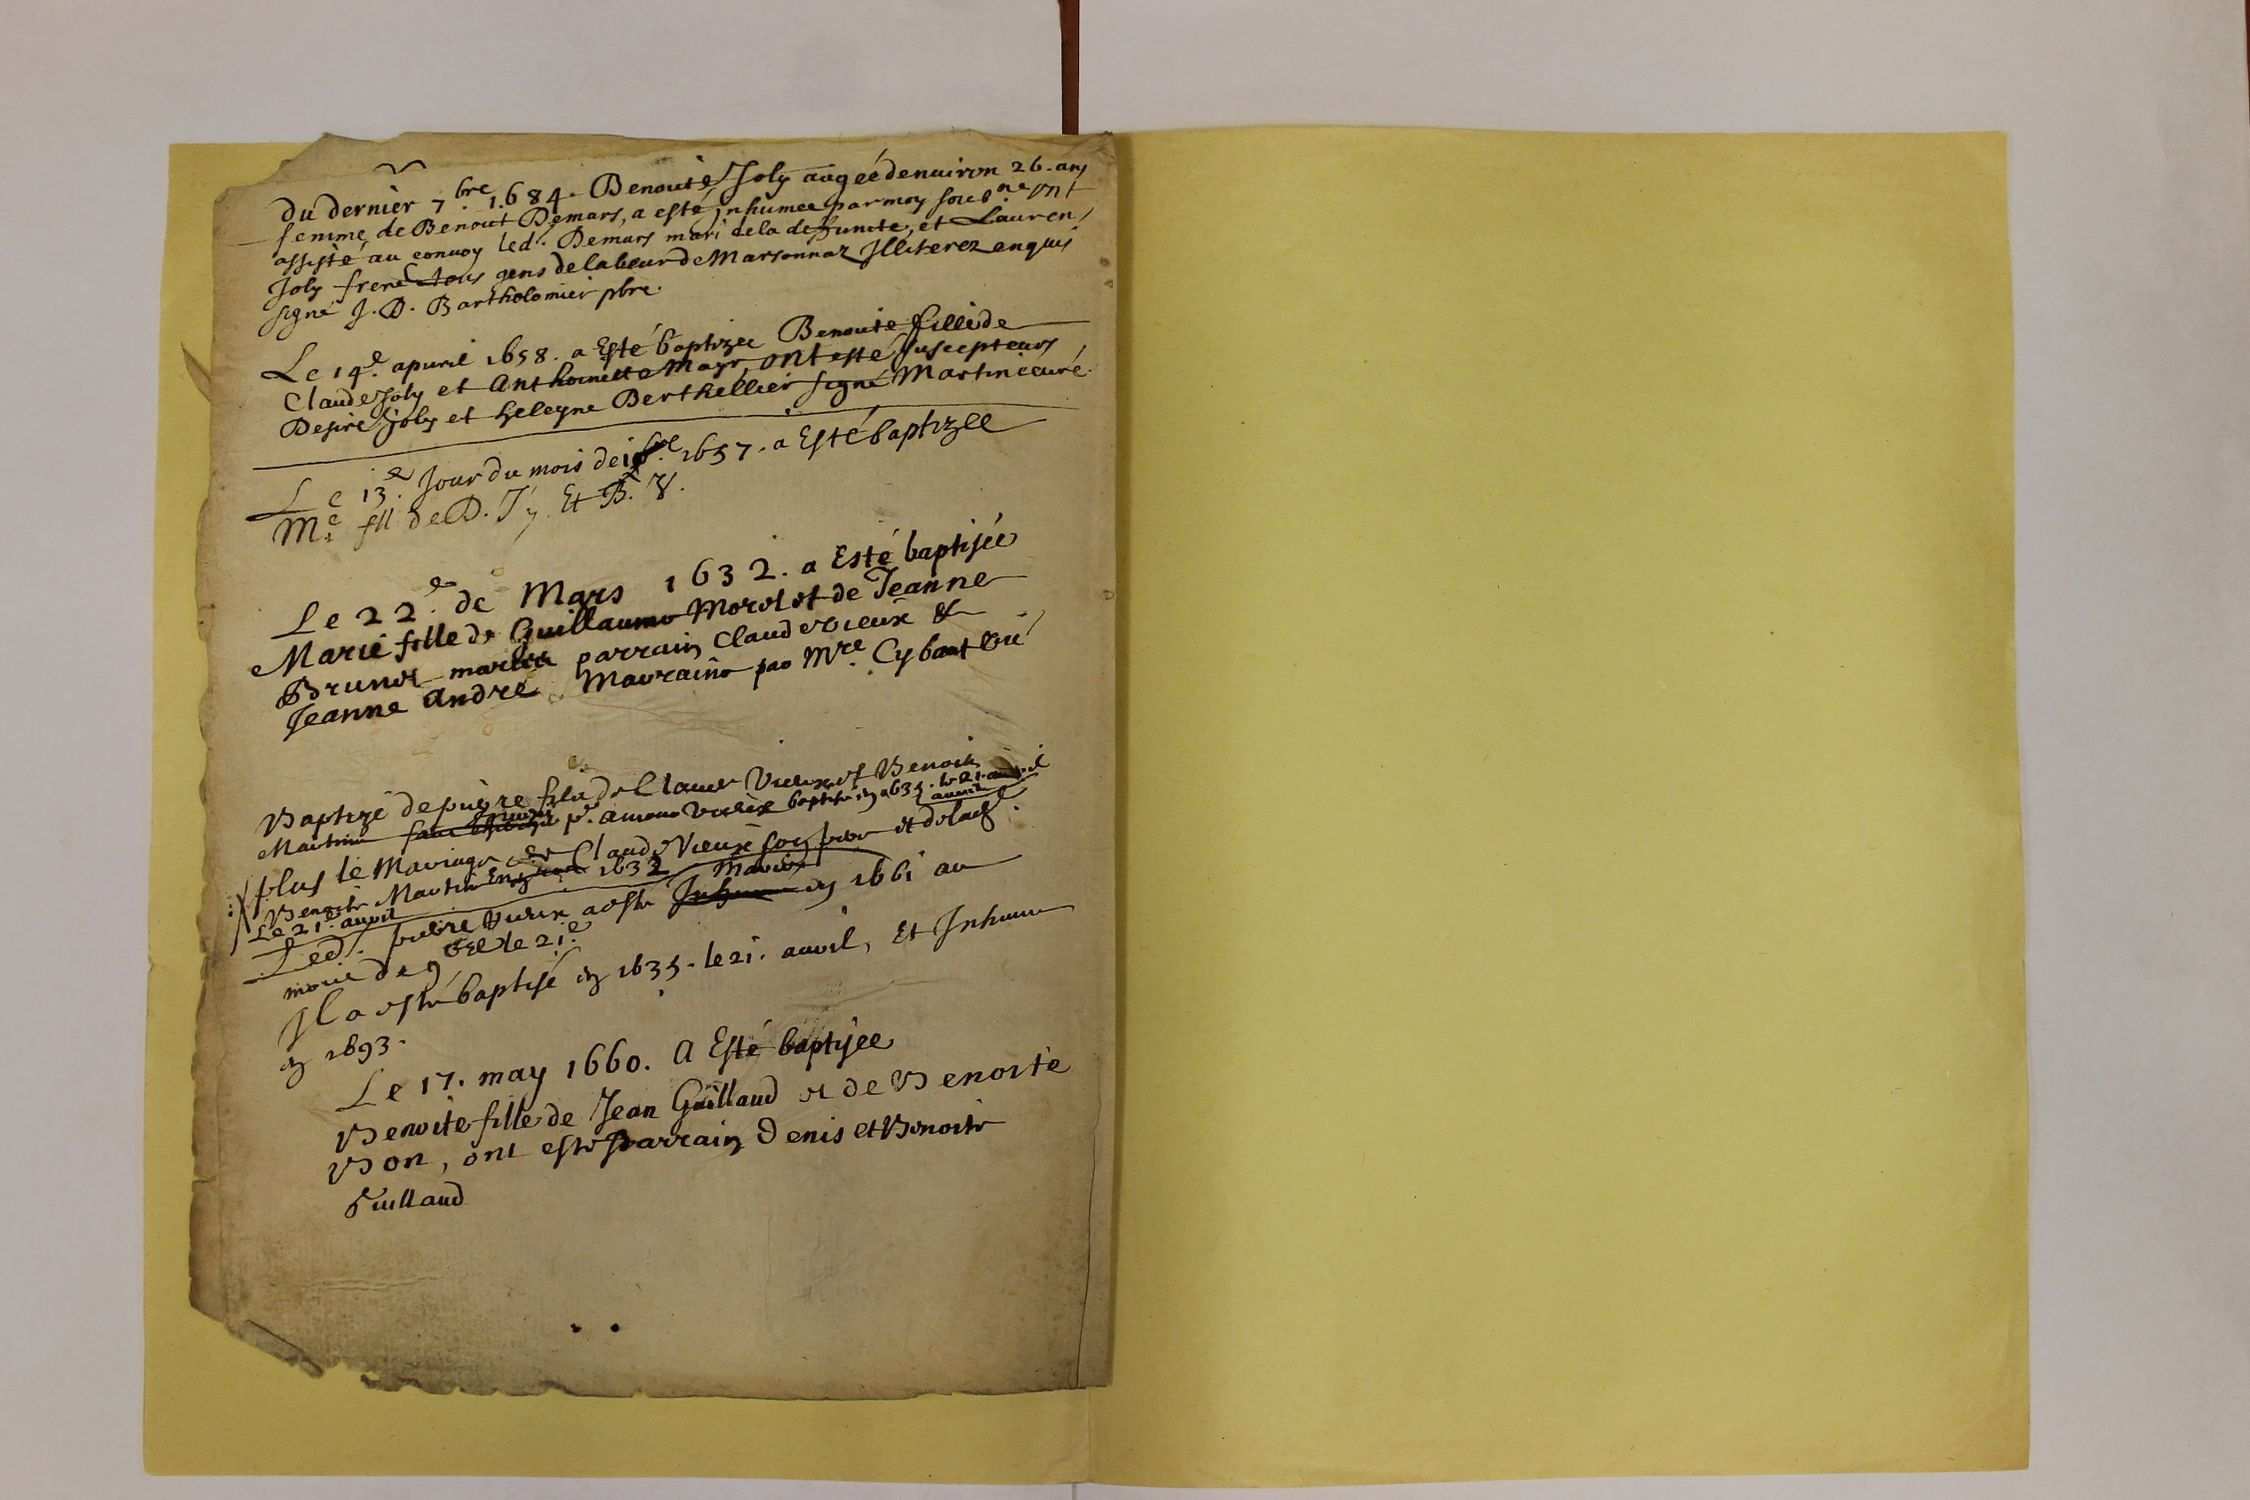 du dernier 7.bre 1684. Benoite Joly aagée denuiron 26. ans
femme de Benoit Demars, a esté inhumee par moy soub.né ont
assisté au conuoy led. Demars mari dela defuncte, et Lauren
Joly frere tous gens delabeur de Marsonnaz Illiterez enquis
signé J. D. Bartholomier pbre.
Le 14e. apuril 1658. a Esté baptizee Benoite fille de
Claude Joly et Anthoinette Mayr, ont esté suscepteurs
Desiré Joly et heleyne Berthellier signé Martin curé.
Le 13.e Jour du mois de 1657. a Esté baptizee
M.e fll de D. Jy. Et B. V.
Le 22.e de Mars 1632. a Esté baptisée
Marie fille de Guillaume Morel et de Jeanne
Brunet parrain Claude Vieux &
Jeanne André Marraine par Mre. Cybaut
Baptizé de pierre filz de Claude Vieux et Benoite
Martin baptisé en 1635. le 21. auril
plus le Mariage de Claude Vieux son pere et de lad.
Benoite Martin 1632
Le 21e. auril
Led. pierre Vieux a esté Marié en 1661 au
mois de le 21.e
Il a esté baptisé en 1635. le 21. auril, Et Inhumé
en 1693.
Le 17. may 1660. A Esté baptisée
Benoite fille de Jean Guillaud et de Benoite
Bon, ont esté parrain Denis et Benoite
Guillaud